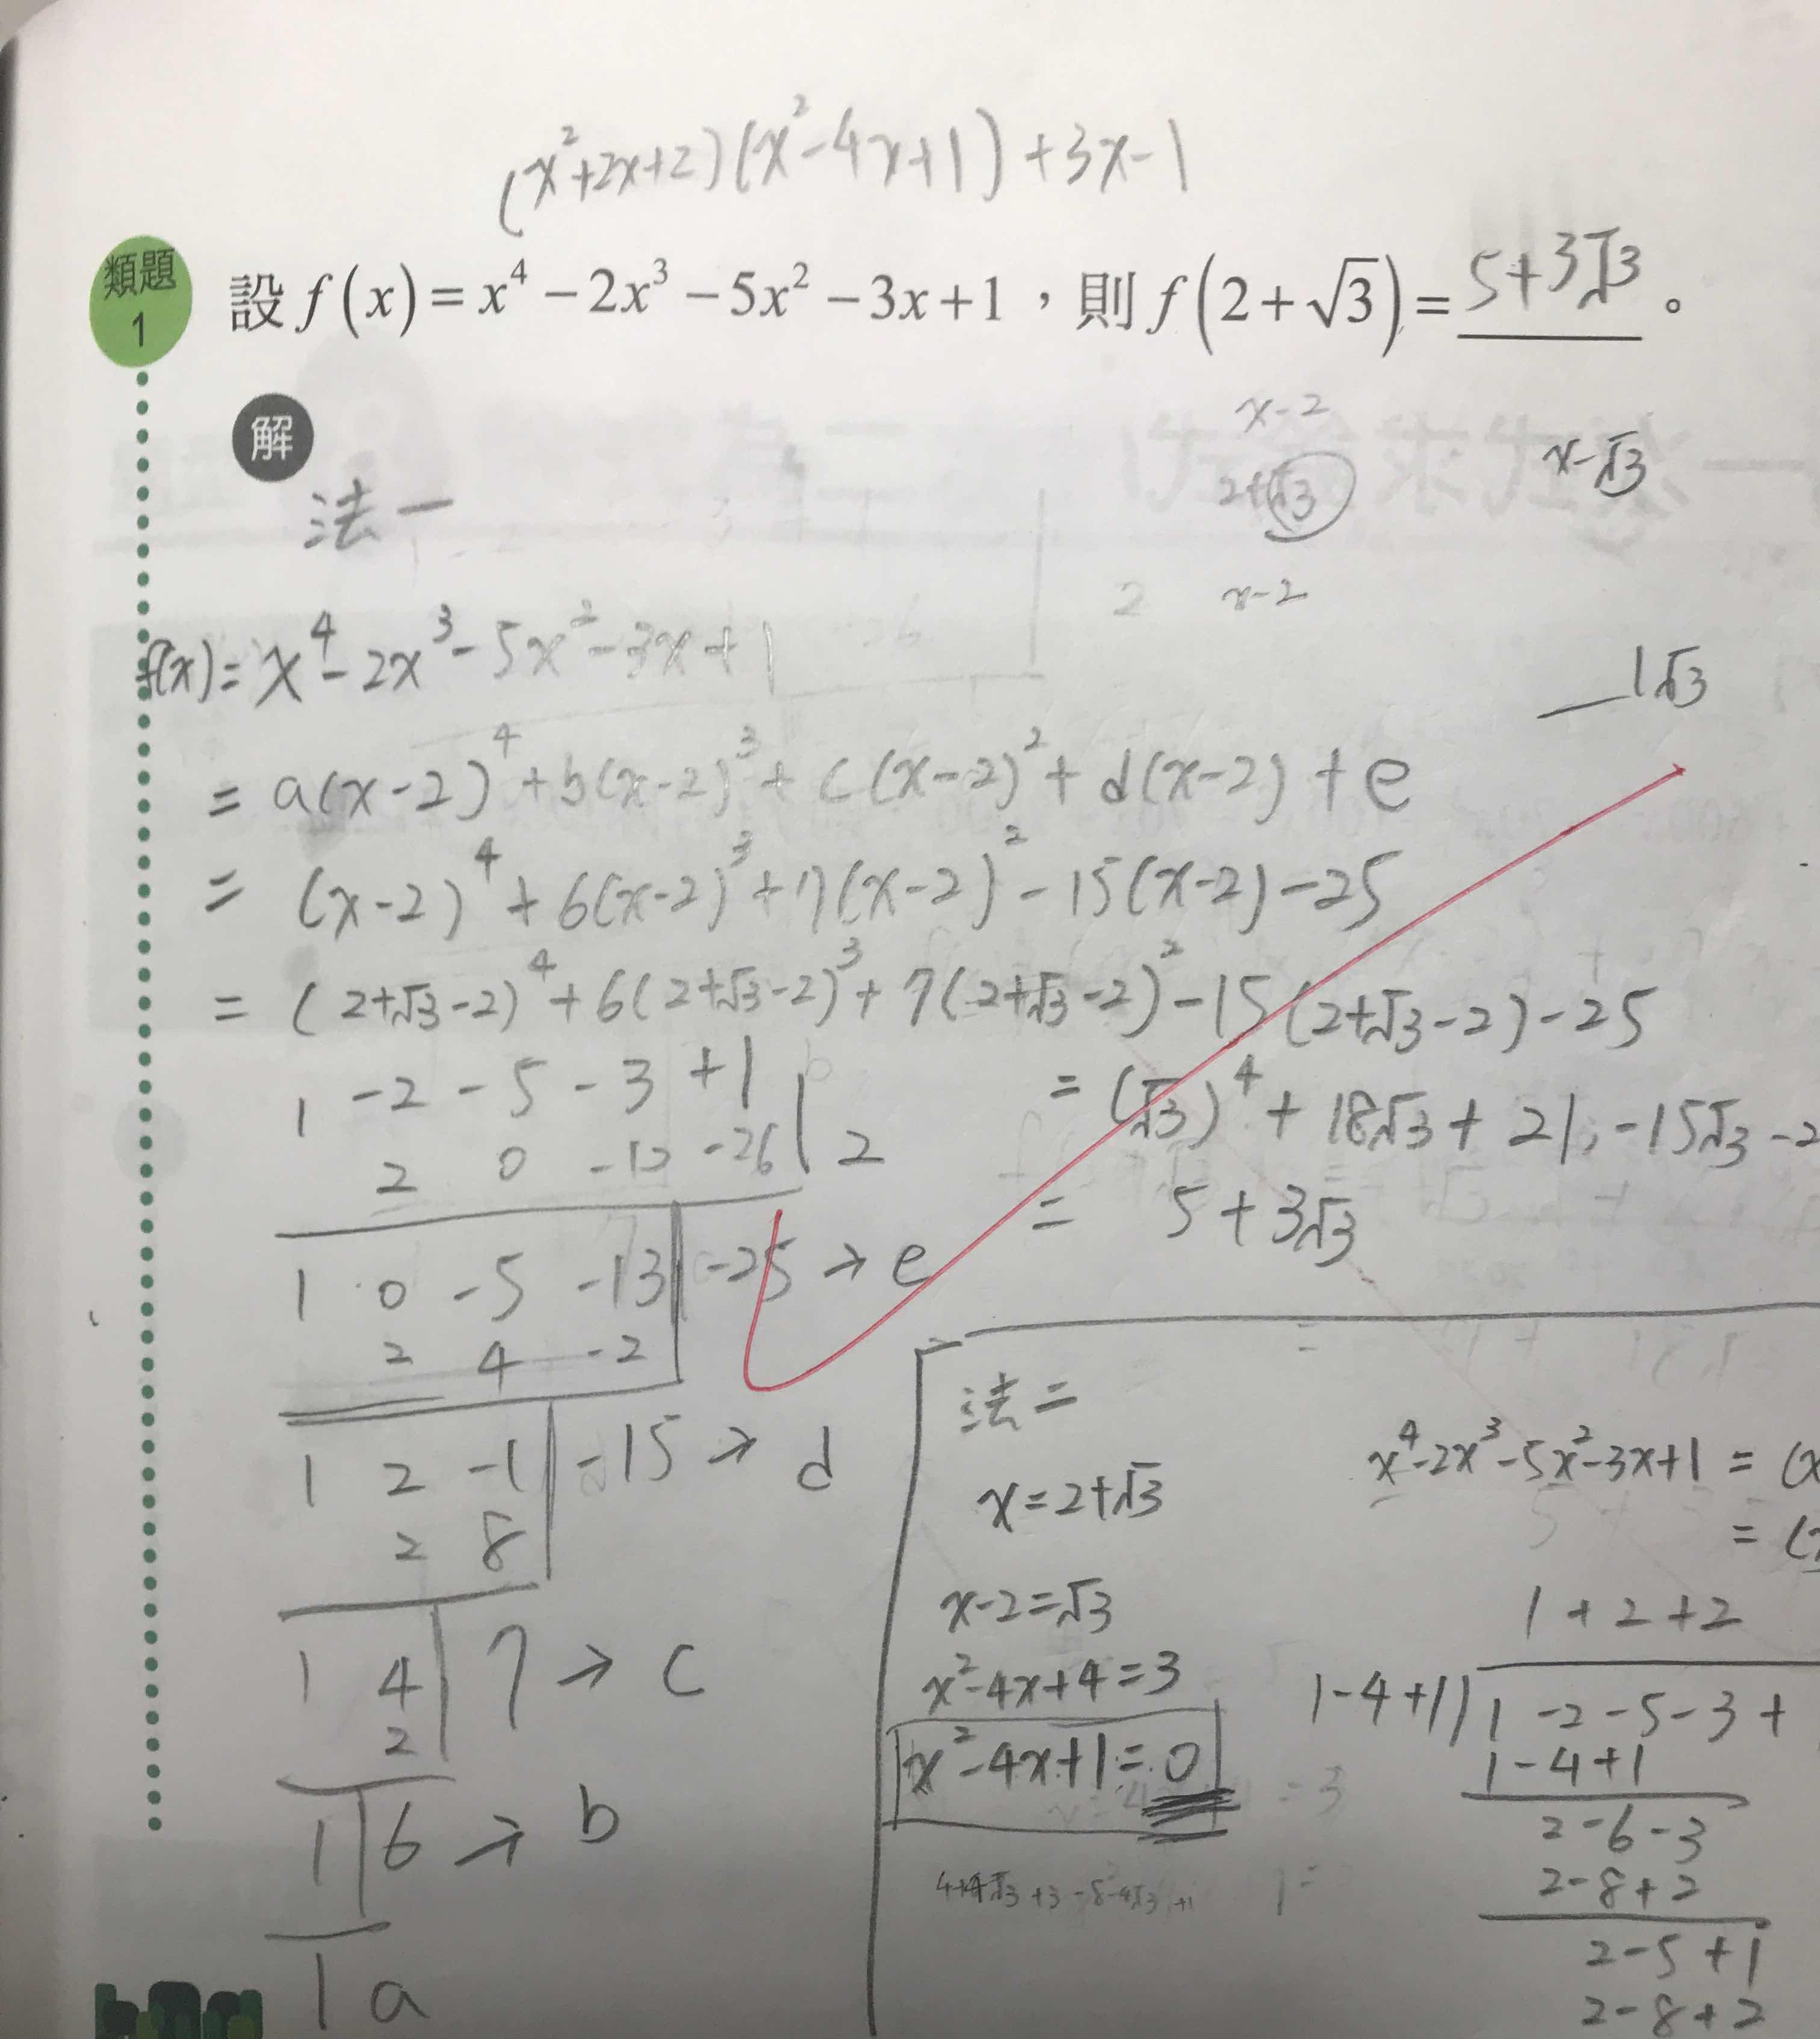 (x²+2x+2)(x²-4x+1)+3x-1
類題
1
設 f(x) = x⁴ − 2x³ − 5x² − 3x + 1，則 f(2+√3) = 5+3√3 。
x-2
x-√3
2+√3
解
法一
2
x-2
f(x) = x⁴-2x³-5x²-3x+1
1√3
= a(x-2)⁴+b(x-2)³+c(x-2)²+d(x-2)+e
= (x-2)⁴+6(x-2)³+7(x-2)²-15(x-2)-25
= (2+√3-2)⁴+6(2+√3-2)³+7(2+√3-2)²-15(2+√3-2)-25
= (√3)⁴+18√3+21-15√3-2
= 5+3√3
1 -2 -5 -3 +1
2 0 -10 -26 | 2
1 0 -5 -13 | -25 → e
2 4 -2
1 2 -1 | -15 → d
2 8
1 4 | 7 → c
2
1 | 6 → b
1 a
法二
x=2+√3
x-2=√3
x²-4x+4=3
x²-4x+1=0
4+4√3+3-8-4√3+1
x⁴-2x³-5x²-3x+1 = (x
= (
1+2+2
1-4+1) 1-2-5-3+
1-4+1
2-6-3
2-8+2
2-5+1
2-8+2